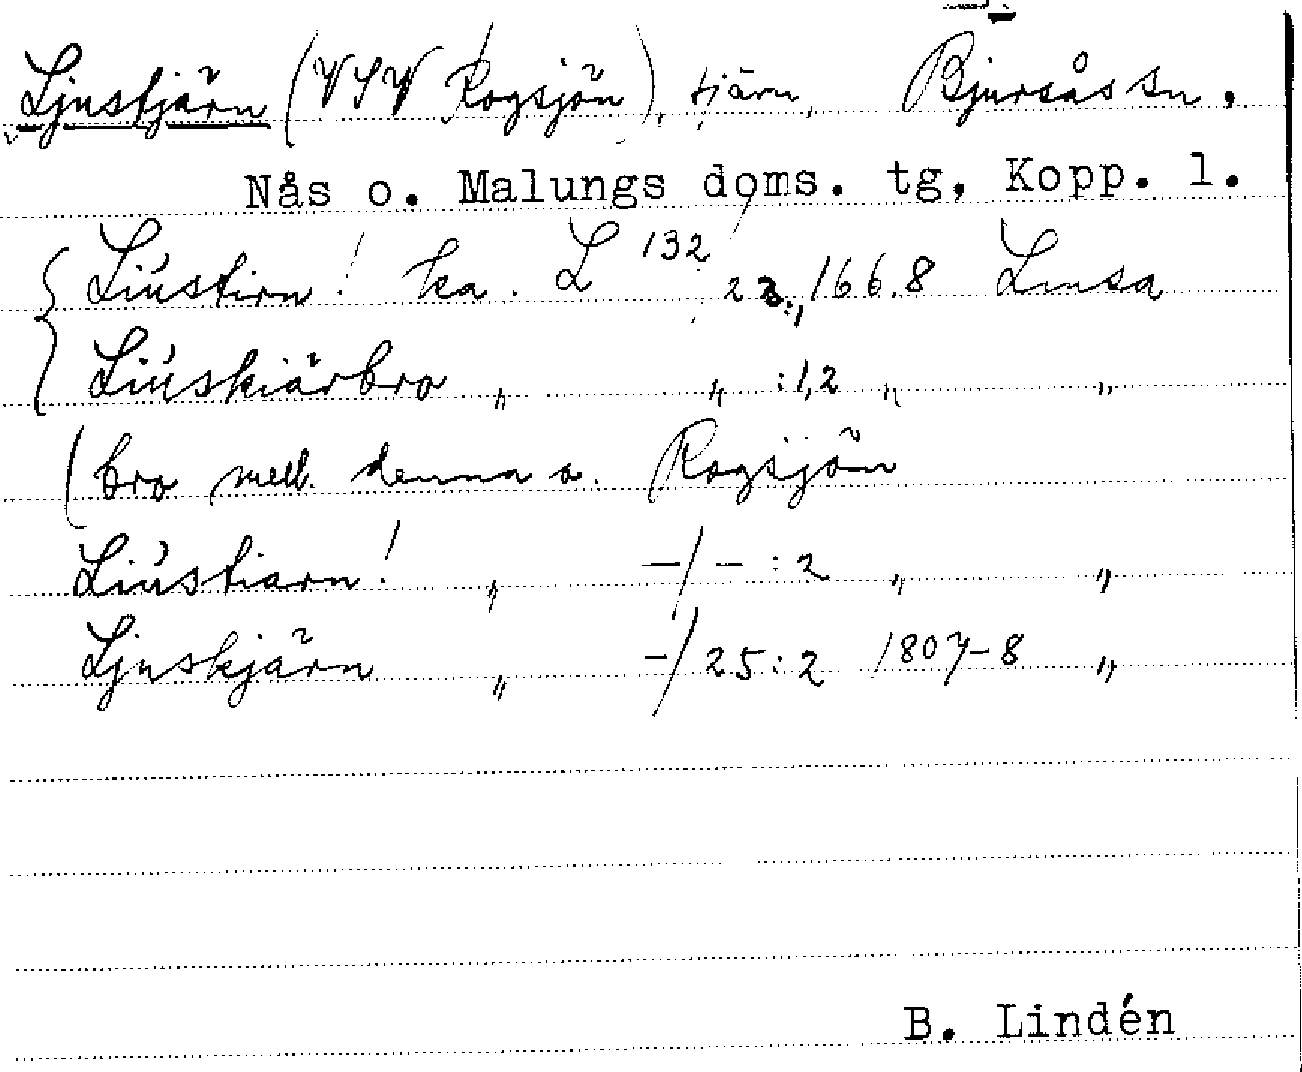 Ljustjärn (VSV Rogsjön), tjärn, Bjursås sn.
Nås o. Malungs doms. tg, Kopp. l.
Liústirn! ka. L 132 22:1, 166.8 Lmsa
Liúskiärbro " " :1,2 " "
(bro mell. denna o. Rogsjön
Liústiarn! " -/- :2 " "
Ljuskjärn " -/25:2 1807-8 "
B. Lindén